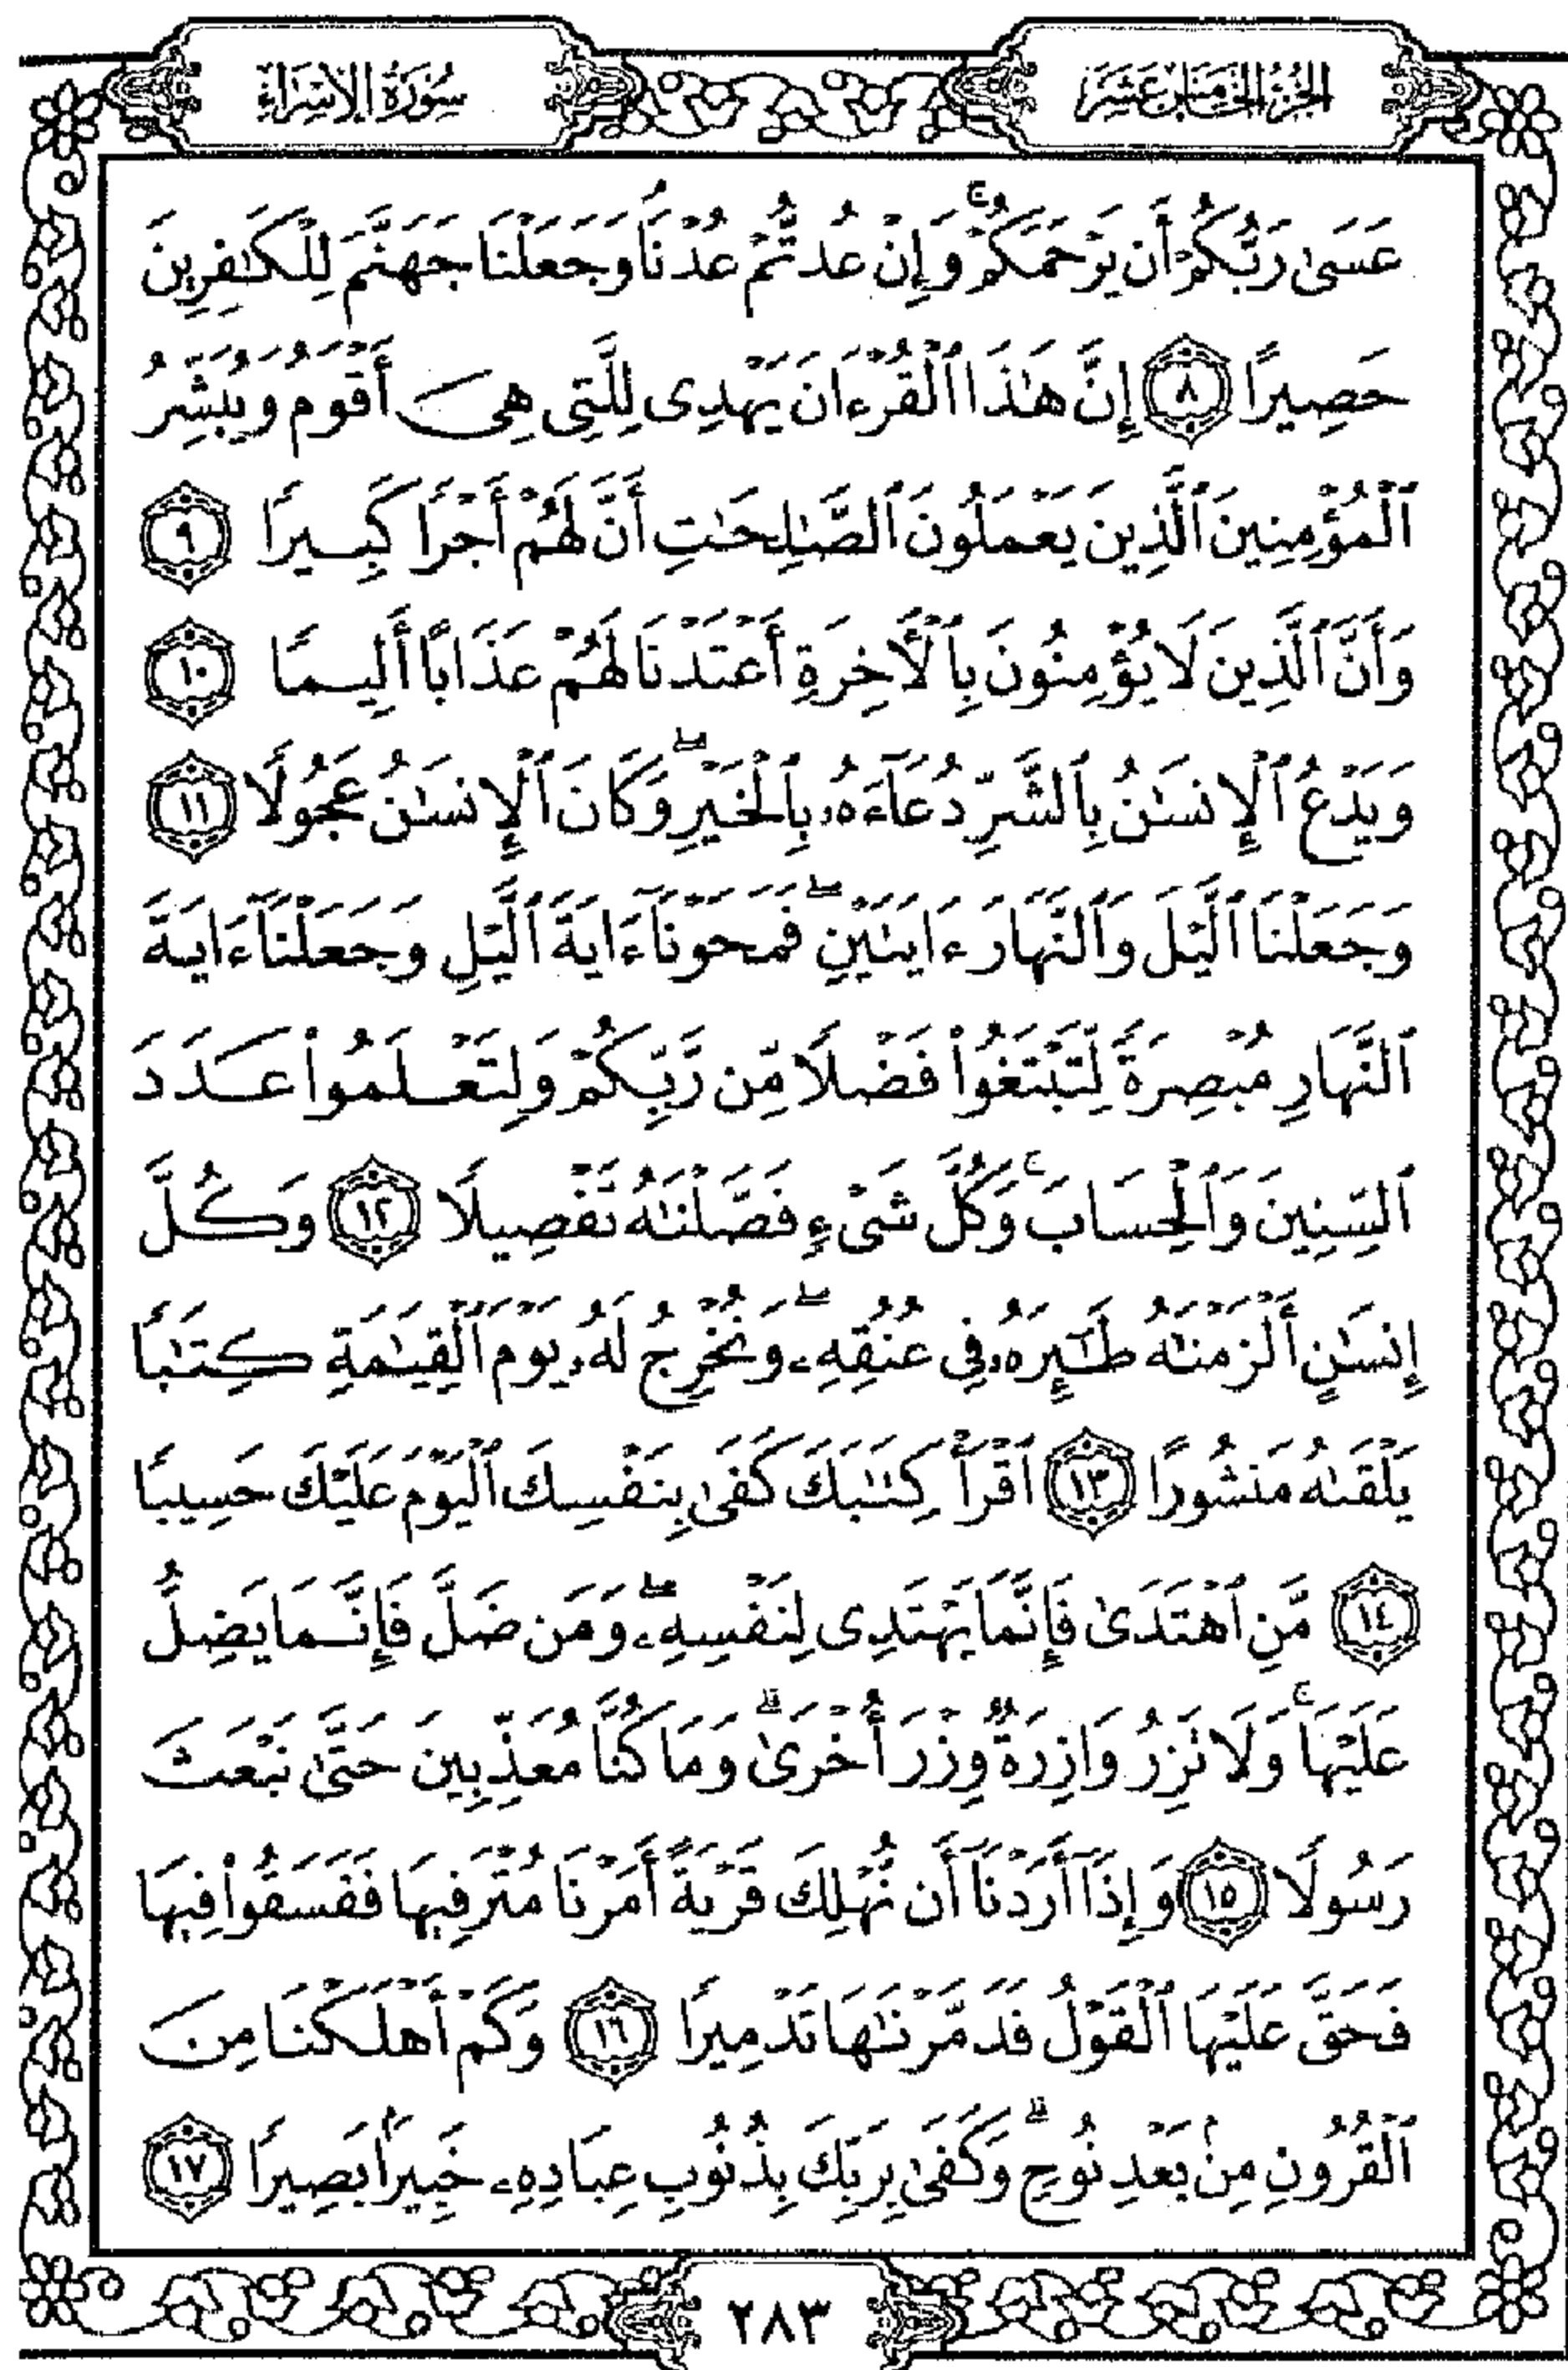 الجزء الخامس عشر
سورة الإسراء
عَسَىٰ رَبُّكُمْ أَن يَرْحَمَكُمْ ۚ وَإِنْ عُدتُّمْ عُدْنَا ۘ وَجَعَلْنَا جَهَنَّمَ لِلْكَٰفِرِينَ
حَصِيرًا ٨ إِنَّ هَٰذَا ٱلْقُرْءَانَ يَهْدِى لِلَّتِى هِىَ أَقْوَمُ وَيُبَشِّرُ
ٱلْمُؤْمِنِينَ ٱلَّذِينَ يَعْمَلُونَ ٱلصَّٰلِحَٰتِ أَنَّ لَهُمْ أَجْرًا كَبِيرًا ٩
وَأَنَّ ٱلَّذِينَ لَا يُؤْمِنُونَ بِٱلْأَخِرَةِ أَعْتَدْنَا لَهُمْ عَذَابًا أَلِيمًا ١٠
وَيَدْعُ ٱلْإِنسَٰنُ بِٱلشَّرِّ دُعَآءَهُۥ بِٱلْخَيْرِ ۖ وَكَانَ ٱلْإِنسَٰنُ عَجُولًا ١١
وَجَعَلْنَا ٱلَّيْلَ وَٱلنَّهَارَ ءَايَتَيْنِ ۖ فَمَحَوْنَآ ءَايَةَ ٱلَّيْلِ وَجَعَلْنَآ ءَايَةَ
ٱلنَّهَارِ مُبْصِرَةً لِّتَبْتَغُوا۟ فَضْلًا مِّن رَّبِّكُمْ وَلِتَعْلَمُوا۟ عَدَدَ
ٱلسِّنِينَ وَٱلْحِسَابَ ۚ وَكُلَّ شَىْءٍ فَصَّلْنَٰهُ تَفْصِيلًا ١٢ وَكُلَّ
إِنسَٰنٍ أَلْزَمْنَٰهُ طَٰٓئِرَهُۥ فِى عُنُقِهِۦ ۖ وَنُخْرِجُ لَهُۥ يَوْمَ ٱلْقِيَٰمَةِ كِتَٰبًا
يَلْقَىٰهُ مَنشُورًا ١٣ ٱقْرَأْ كِتَٰبَكَ كَفَىٰ بِنَفْسِكَ ٱلْيَوْمَ عَلَيْكَ حَسِيبًا
١٤ مَّنِ ٱهْتَدَىٰ فَإِنَّمَا يَهْتَدِى لِنَفْسِهِۦ ۖ وَمَن ضَلَّ فَإِنَّمَا يَضِلُّ
عَلَيْهَا ۚ وَلَا تَزِرُ وَازِرَةٌ وِزْرَ أُخْرَىٰ ۗ وَمَا كُنَّا مُعَذِّبِينَ حَتَّىٰ نَبْعَثَ
رَسُولًا ١٥ وَإِذَآ أَرَدْنَآ أَن نُّهْلِكَ قَرْيَةً أَمَرْنَا مُتْرَفِيهَا فَفَسَقُوا۟ فِيهَا
فَحَقَّ عَلَيْهَا ٱلْقَوْلُ فَدَمَّرْنَٰهَا تَدْمِيرًا ١٦ وَكَمْ أَهْلَكْنَا مِنَ
ٱلْقُرُونِ مِنۢ بَعْدِ نُوحٍ ۗ وَكَفَىٰ بِرَبِّكَ بِذُنُوبِ عِبَادِهِۦ خَبِيرًۢا بَصِيرًا ١٧
٢٨٣